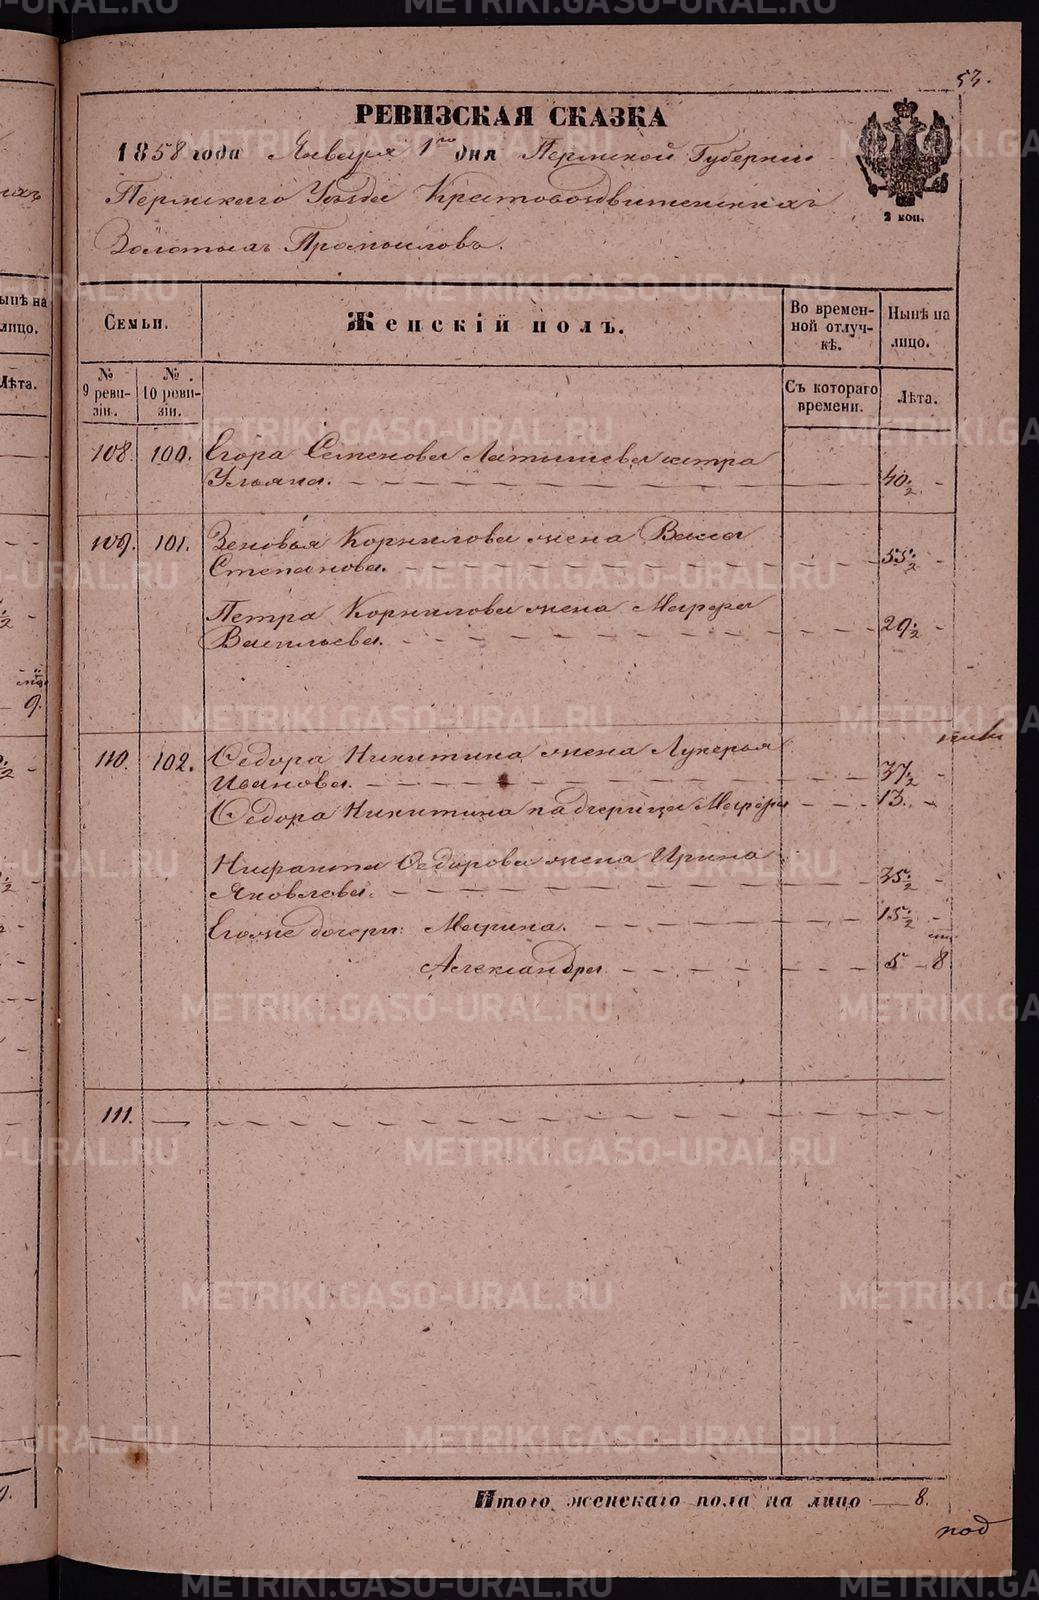 53.
РЕВИЗСКАЯ СКАЗКА
1858 года Января 1го дня Пермской Губерніи
Пермскаго Уѣзда Крестовоздвиженскихъ
Золотыхъ Промысловъ.
2 коп.
Семьи.
Женскій полъ.
Во временной отлучкѣ.
Нынѣ на лицо.
№ 9 ревизіи.
№ 10 ревизіи.
Съ котораго времени.
Лѣта.
108. 100. Егора Семенова Латышева сестра
Ульяна. 40½
109. 101. Зеновья Корнилова жена Васса
Степанова. 55½
Петра Корнилова жена Марфа
Васильева. 29½
110. 102. Ѳедора Никитина жена Лукерья
Иванова. 37½
Ѳедора Никитина падчерица Марфа 13.
Нифанта Ѳедорова жена Ирина
Яковлева. 35½
Егоже дочери: Марина. 15½
Александра. 5 8
111.
Итого женскаго пола на лицо 8.
под
METRIKI.GASO-URAL.RU